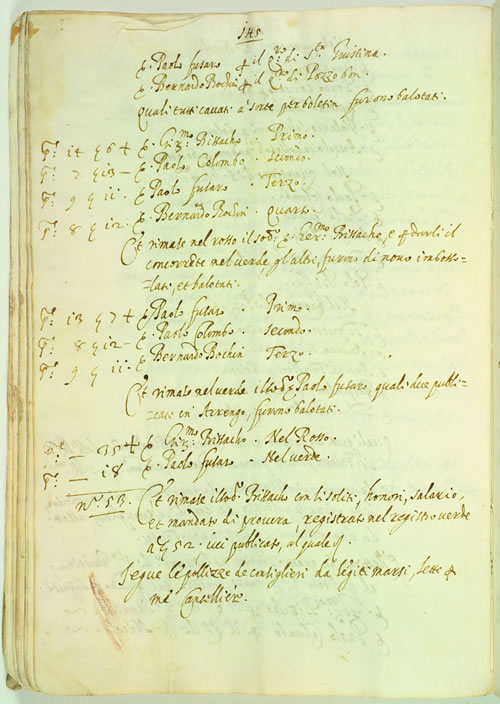 145
Paolo fusaro il di Sta Giustina.
Bernardo Bochin il di Pozzo bon.
Quali tutti cavati a sorte per boletin furono balotati.
14 6 + Girmo Brissacho. Primo.
7 13 – Paolo Colombo. secondo.
9 11. Paolo fusaro. Terzo.
8 12. Bernardo Bochin. quarto.
Et rimase nel rosso il sodo Brissacho, e darli il
concorrente nel verde, gl'altri, furono di novo imbosso-
-lati, et balotati.
13 7 + Paolo fusar. Primo.
8 12 – Paolo Colombo. secondo.
9 11. Bernardo Bochin Terzo.
Et rimase nel verde il sodo Paolo fusaro, quali due publi-
-cati in Arrengo, furono balotati.
– 35 + Girmo Brissacho. Nel Rosso.
– 18 Paolo fusar. Nel verde.
no 53. Et rimase il sodo Brissacho con li soliti, honori, salario,
et mandato di procura, registrato nel registro verde
a 52. ivi publicato, al quale
Segue le pollizze de consiglieri da legiti marsi, lette
me Cancelliero.